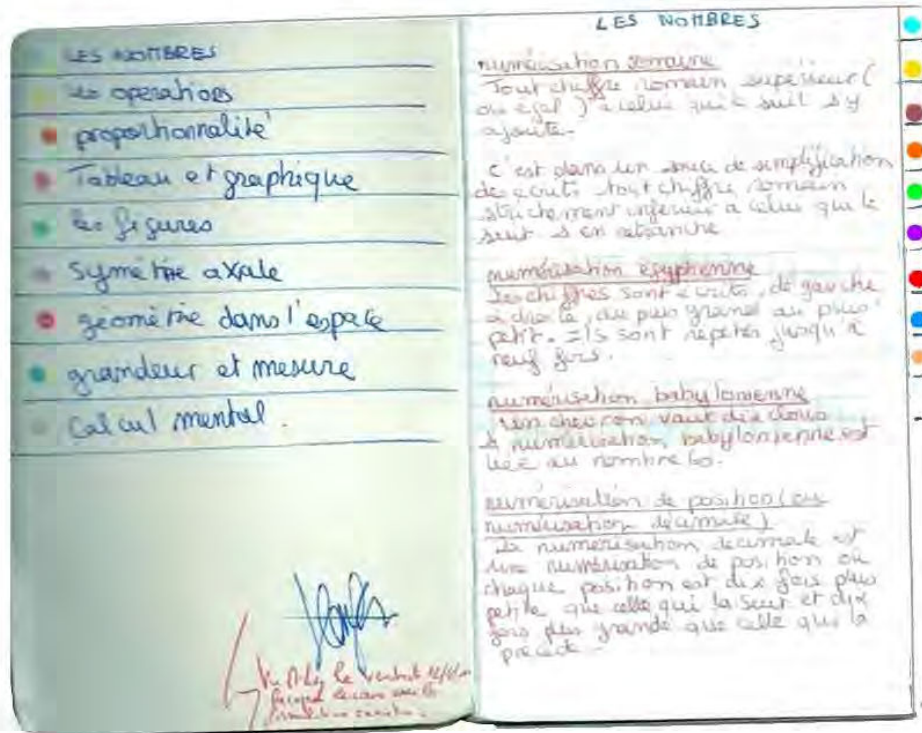 LES NOMBRES
les operations
proportionnalité
Tableau et graphique
les figures
Symetrie axale
géometrie dans l'espace
grandeur et mesure
calcul mental.
LES NOMBRES
numérisation romaine
Tout chiffre romain supérieur (
ou égal) à celui qui le suit s'y
ajoute.
c'est dans un souci de simplification
des ecrits tout chiffre romain
strictement inferieur a celui qui le
suit s'en retranche
numérisation égyptienne
Les chiffres sont ecrits, de gauche
a droite, du plus grand au plus
petit. Ils sont repetés jusqu'a
neuf fois.
numérisation babylonienne
un chevron vaut dix clous
numérisation babylonienne est
liée au nombre 60.
numérisation de position (ou
numérisation décimale)
La numérisation decimale est
une numérisation de position où
chaque position est dix fois plus
petite que celle qui la suit et dix
fois plus grande que celle qui la
précède.
le vendredi